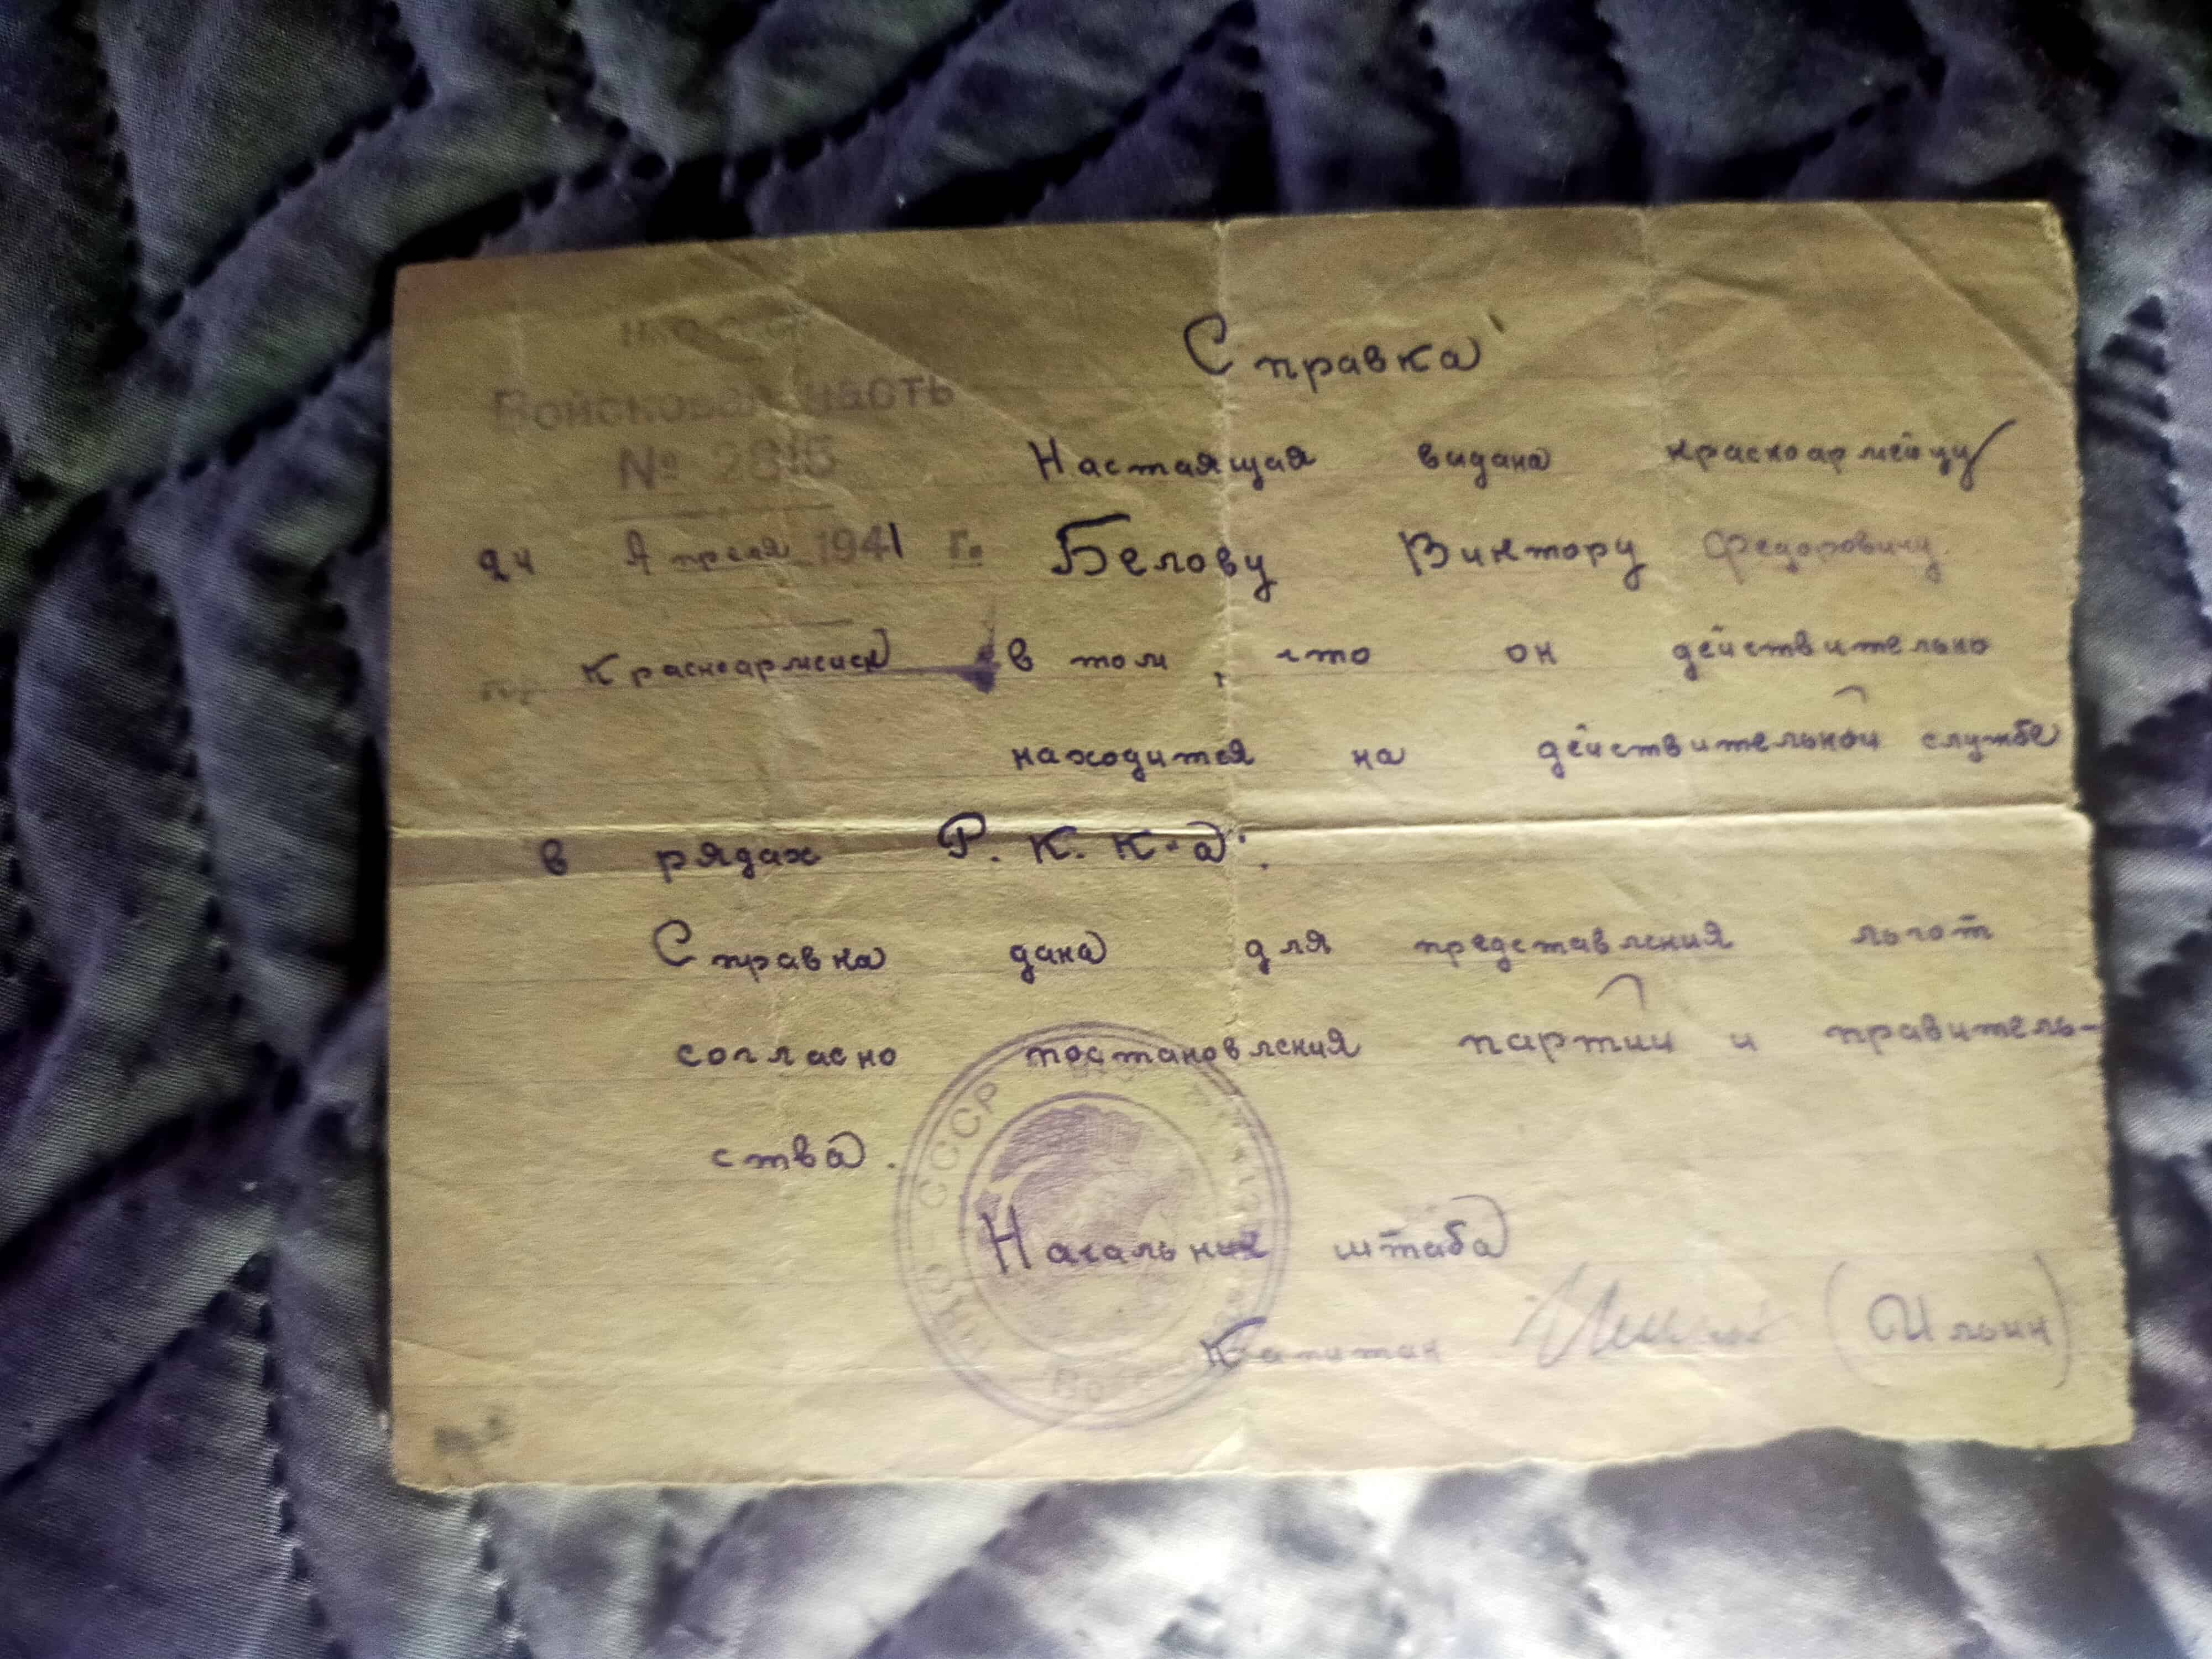 Справка
Войсковая часть
№ 2815
Настаящая видана красноармейцу
24 Апреля 1941 Г.
Белову Виктору Федоровичу.
гор. Красноармейск
в том, что он действительно
находится на действительной службе
в рядах Р. К. К. а.
Справка дана для представления льгот
согласно постановления партий и правитель-
ства.
НКО-СССР
Начальник штаба
Капитан (Ильин)